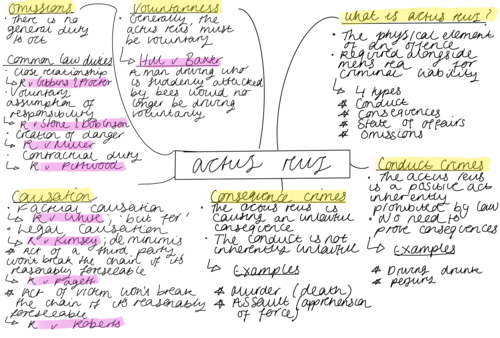 Omissions
• There is no
general duty
to act
Common law duties
• Close relationship
↳ R v Gibbins & Proctor
• Voluntary
assumption of
responsibility
↳ R v Stone & Dobinson
• Creation of danger
↳ R v Miller
• Contractual duty
↳ R v Pittwood
Voluntariness
• Generally, the
actus reus must
be voluntary
↳ Hill v Baxter
A man driving who
is suddenly attacked
by bees would no
longer be driving
voluntarily
What is actus reus?
• The physical element
of an offence
• Required alongside
mens rea for
criminal liability
↳ 4 types
* Conduct
* Consequences
* State of affairs
* Omissions
actus reus
Causation
• Factual causation
↳ R v White; 'but for'
• Legal causation
↳ R v Kimsey; de minimis
* Act of a third party
won't break the chain if its
reasonably foreseeable
↳ R v Pagett
* Act of victim won't break
the chain if its reasonably
foreseeable
↳ R v Roberts
Consequence crimes
• The actus reus is
causing an unlawful
consequence
• The conduct is not
inherently unlawful
↳ Examples
* Murder (death)
* Assault (apprehension
of force)
Conduct crimes
• The actus reus
is a positive act
inherently
prohibited by law
• No need to
prove consequences
↳ Examples
* Driving drunk
* Perjury